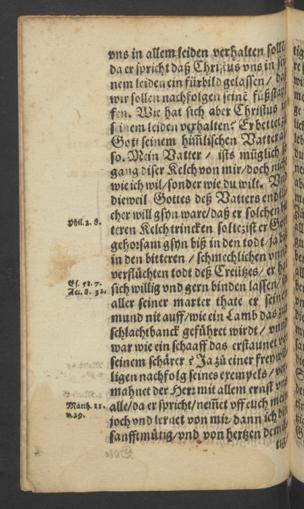 vns in allem leiden verhalten soll
da er spricht daß Christus vns in sei
nem leiden ein fürbild gelassen /
wir sollen nachfolgen seinē fůßsta
fen. Wie hat sich aber Christus
seinem leiden verhalten? Er bettet
Gott seinem himlischen Vatter
so. Mein Vatter / ists müglich
gang diser Kelch von mir / doch nicht
wie ich wil / sonder wie du wilt.
dieweil Gottes deß Vatters endt
cher will gsyn ware / daß er solchen
Phil. 2. 8.
teren Kelch trincken solte: ist er
gehorsam gsyn biß in den todt / ja
in den bitteren / schmechlichen vn
verflůchten todt deß Creützes / er
Es. 53. 7.
Act. 8. 32.
sich willig vnd gern binden lassen /
aller seiner marter thate er seinen
mund nit auff / wie ein Lamb das
schlachtbanck gefůhret wirdt /
war wie ein schaaff das erstaunet
seinem schärer? Ja zů einer freywil
ligen nachfolg seines exempels /
mahnet der Herr mit allem ernst
Matth. 11.
v. 29.
alle / da er spricht / nem̄et vff euch mein
joch vnd lernet von mir / dann ich
sanfftmůtig / vnd von hertzen demů
tig